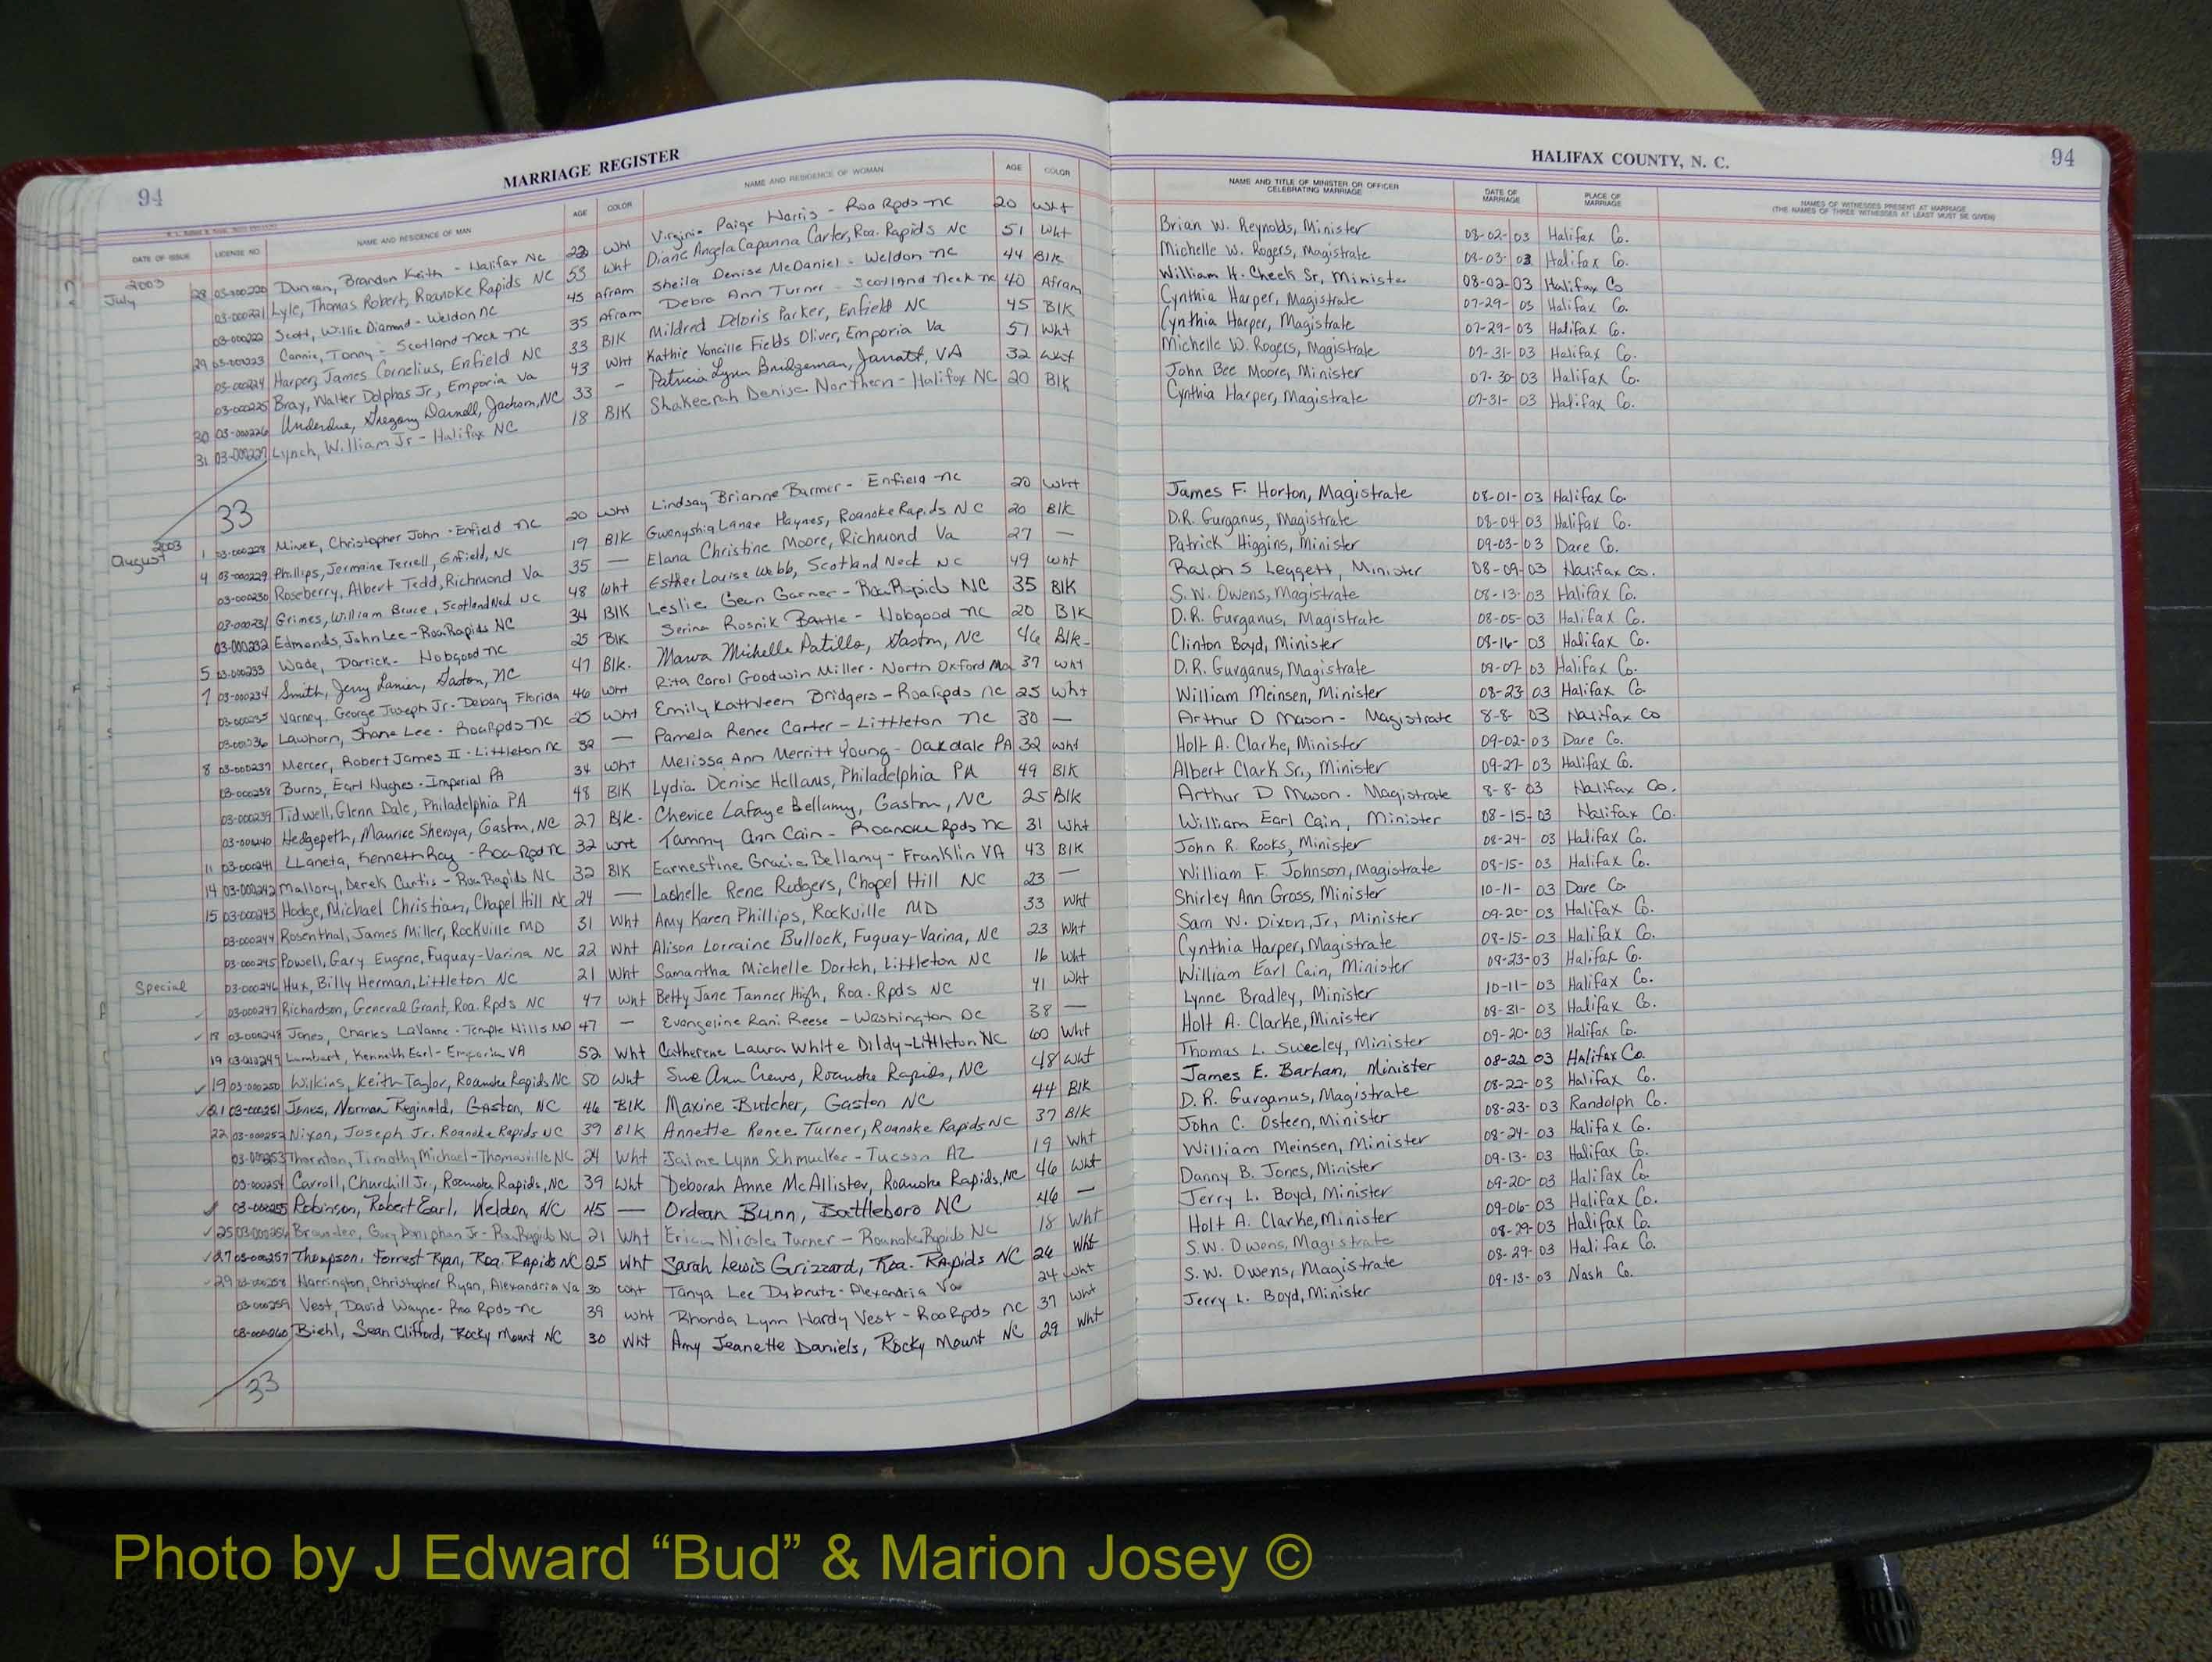 94
MARRIAGE REGISTER
DATE OF ISSUE LICENSE NO. NAME AND RESIDENCE OF MAN AGE COLOR NAME AND RESIDENCE OF WOMAN AGE COLOR
2003
July 28 03-000220 Duncan, Brandon Keith - Halifax NC 22 Wht Virginia Paige Harris - Roa Rpds NC 20 Wht
03-000221 Lyle, Thomas Robert, Roanoke Rapids NC 53 Wht Diane Angela Capanna Carter, Roa. Rapids NC 51 Wht
03-000222 Scott, Willie Diamond - Weldon NC 45 Afram Sheila Denise McDaniel - Weldon NC 44 Blk
29 03-000223 Cannie, Tonny - Scotland Neck NC 35 Afram Debra Ann Turner - Scotland Neck NC 40 Afram
03-000224 Harper, James Cornelius, Enfield NC 33 Blk Mildred Deloris Parker, Enfield NC 45 Blk
03-000225 Bray, Walter Dolphas Jr, Emporia Va 43 Wht Kathie Voncille Fields Oliver, Emporia Va 51 Wht
30 03-000226 Underdue, Gregory Darnell, Jackson, NC 33 - Patricia Lynn Bridgeman, Jarratt, VA 32 Wht
31 03-000227 Lynch, William Jr - Halifax NC 18 Blk Shakeerah Denise Northern - Halifax NC 20 Blk
33
2003
August 1 03-000228 Minek, Christopher John - Enfield NC 20 Wht Lindsay Brianne Barmer - Enfield NC 20 Wht
4 03-000229 Phillips, Jermaine Terrell, Enfield, NC 19 Blk Gwenyshia Lanae Haynes, Roanoke Rapids NC 20 Blk
03-000230 Roseberry, Albert Tedd, Richmond Va 35 — Elana Christine Moore, Richmond Va 27 —
03-000231 Grimes, William Bruce, Scotland Neck NC 48 Wht Esther Louise Webb, Scotland Neck NC 49 Wht
03-000232 Edmonds, John Lee - Roa Rapids NC 34 Blk Leslie Gean Garner - Roa Rapids NC 35 Blk
5 03-000233 Wade, Darrick - Hobgood NC 25 Blk Serina Rosnik Battle - Hobgood NC 20 Blk
7 03-000234 Smith, Jerry Lanier, Gaston, NC 47 Blk. Marva Michelle Patillo, Gaston, NC 46 Blk-
03-000235 Varney, George Joseph Jr - Debary Florida 46 Wht Rita Carol Goodwin Miller - North Oxford Ma 37 Wht
03-000236 Lawhorn, Shane Lee - Roa Rpds NC 25 Wht Emily Kathleen Bridgers - Roa Rpds NC 25 Wht
8 03-000237 Mercer, Robert James II - Littleton NC 32 — Pamela Renee Carter - Littleton NC 30 —
03-000238 Burns, Earl Hughes - Imperial PA 34 Wht Melissa Ann Merritt Young - Oakdale PA 32 Wht
03-000239 Tidwell, Glenn Dale, Philadelphia PA 48 Blk Lydia Denise Hellams, Philadelphia PA 49 Blk
03-000240 Hedgepeth, Maurice Sheroya, Gaston, NC 27 Blk- Cherice Lafaye Bellamy, Gaston, NC 25 Blk
11 03-000241 LLaneta, Kenneth Ray - Roa Rpd NC 32 Wht Tammy Ann Cain - Roanoke Rpds NC 31 Wht
14 03-000242 Mallory, Derek Curtis - Roa Rapids NC 32 Blk Earnestine Gracie Bellamy - Franklin VA 43 Blk
15 03-000243 Hodge, Michael Christian, Chapel Hill NC 24 — Lashelle Rene Rodgers, Chapel Hill NC 23 —
03-000244 Rosenthal, James Miller, Rockville MD 31 Wht Amy Karen Phillips, Rockville MD 33 Wht
03-000245 Powell, Gary Eugene, Fuquay-Varina NC 22 Wht Alison Lorraine Bullock, Fuquay-Varina, NC 23 Wht
Special 03-000246 Hux, Billy Herman, Littleton NC 21 Wht Samantha Michelle Dortch, Littleton NC 16 Wht
03-000247 Richardson, General Grant, Roa. Rpds NC 47 Wht Betty Jane Tanner High, Roa. Rpds NC 41 Wht
18 03-000248 Jones, Charles LaVanne - Temple Hills MD 47 — Evangeline Rani Reese - Washington DC 38 —
19 03-000249 Lambert, Kenneth Earl - Emporia VA 52 Wht Catherene Laura White Dildy - Littleton NC 60 Wht
19 03-000250 Wilkins, Keith Taylor, Roanoke Rapids NC 50 Wht Sue Ann Crews, Roanoke Rapids, NC 48 Wht
21 03-000251 Jones, Norman Reginald, Gaston, NC 46 Blk Maxine Butcher, Gaston NC 44 Blk
22 03-000252 Nixon, Joseph Jr. Roanoke Rapids NC 39 Blk Annette Renee Turner, Roanoke Rapids NC 37 Blk
03-000253 Thornton, Timothy Michael - Thomasville NC 24 Wht Jaime Lynn Schmucker - Tucson AZ 19 Wht
03-000254 Carroll, Churchill Jr., Roanoke Rapids, NC 39 Wht Deborah Anne McAllister, Roanoke Rapids, NC 46 Wht
03-000255 Robinson, Robert Earl, Weldon, NC 45 — Ordean Bunn, Battleboro NC 46 —
25 03-000256 Browder, Gary Doniphan Jr - Roa Rapids NC 21 Wht Erica Nicole Turner - Roanoke Rapids NC 18 Wht
27 03-000257 Thompson, Forrest Ryan, Roa. Rapids NC 25 Wht Sarah Lewis Grizzard, Roa. Rapids NC 26 Wht
29 03-000258 Harrington, Christopher Ryan, Alexandria Va 30 Wht Tanya Lee Dybrutz - Alexandria Va 24 Wht
03-000259 Vest, David Wayne - Roa Rpds NC 39 Wht Rhonda Lynn Hardy Vest - Roa Rpds NC 37 Wht
03-000260 Biehl, Sean Clifford, Rocky Mount NC 30 Wht Amy Jeanette Daniels, Rocky Mount NC 29 Wht
33
HALIFAX COUNTY, N. C.
94
NAME AND TITLE OF MINISTER OR OFFICER CELEBRATING MARRIAGE DATE OF MARRIAGE PLACE OF MARRIAGE NAMES OF WITNESSES PRESENT AT MARRIAGE
(THE NAMES OF THREE WITNESSES AT LEAST MUST BE GIVEN)
Brian W. Reynolds, Minister 08-02-03 Halifax Co.
Michelle W. Rogers, Magistrate 08-03-03 Halifax Co.
William H. Cheek Sr, Minister 08-02-03 Halifax Co
Cynthia Harper, Magistrate 07-29-03 Halifax Co.
Cynthia Harper, Magistrate 07-29-03 Halifax Co.
Michelle W. Rogers, Magistrate 07-31-03 Halifax Co.
John Bee Moore, Minister 07-30-03 Halifax Co.
Cynthia Harper, Magistrate 07-31-03 Halifax Co.
James F. Horton, Magistrate 08-01-03 Halifax Co.
D.R. Gurganus, Magistrate 08-04-03 Halifax Co.
Patrick Higgins, Minister 09-03-03 Dare Co.
Ralph S Leggett, Minister 08-09-03 Halifax Co.
S. W. Owens, Magistrate 08-13-03 Halifax Co.
D.R. Gurganus, Magistrate 08-05-03 Halifax Co.
Clinton Boyd, Minister 08-16-03 Halifax Co.
D.R. Gurganus, Magistrate 08-07-03 Halifax Co.
William Meinsen, Minister 08-23-03 Halifax Co.
Arthur D Mason - Magistrate 8-8-03 Halifax Co
Holt A. Clarke, Minister 09-02-03 Dare Co.
Albert Clark Sr., Minister 09-27-03 Halifax Co.
Arthur D Mason - Magistrate 8-8-03 Halifax Co.
William Earl Cain, Minister 08-15-03 Halifax Co.
John R. Rooks, Minister 08-24-03 Halifax Co.
William F. Johnson, Magistrate 08-15-03 Halifax Co.
Shirley Ann Gross, Minister 10-11-03 Dare Co
Sam W. Dixon, Jr, Minister 09-20-03 Halifax Co.
Cynthia Harper, Magistrate 08-15-03 Halifax Co.
William Earl Cain, Minister 08-23-03 Halifax Co.
Lynne Bradley, Minister 10-11-03 Halifax Co.
Holt A. Clarke, Minister 08-31-03 Halifax Co.
Thomas L. Sweeley, Minister 09-20-03 Halifax Co.
James E. Barham, Minister 08-22 03 Halifax Co.
D. R. Gurganus, Magistrate 08-22-03 Halifax Co.
John C. Osteen, Minister 08-23-03 Randolph Co.
William Meinsen, Minister 08-24-03 Halifax Co.
Danny B. Jones, Minister 09-13-03 Halifax Co.
Jerry L. Boyd, Minister 09-20-03 Halifax Co.
Holt A. Clarke, Minister 09-06-03 Halifax Co.
S.W. Owens, Magistrate 08-29-03 Halifax Co.
S. W. Owens, Magistrate 08-29-03 Halifax Co.
Jerry L. Boyd, Minister 09-13-03 Nash Co.
Photo by J Edward “Bud” & Marion Josey ©